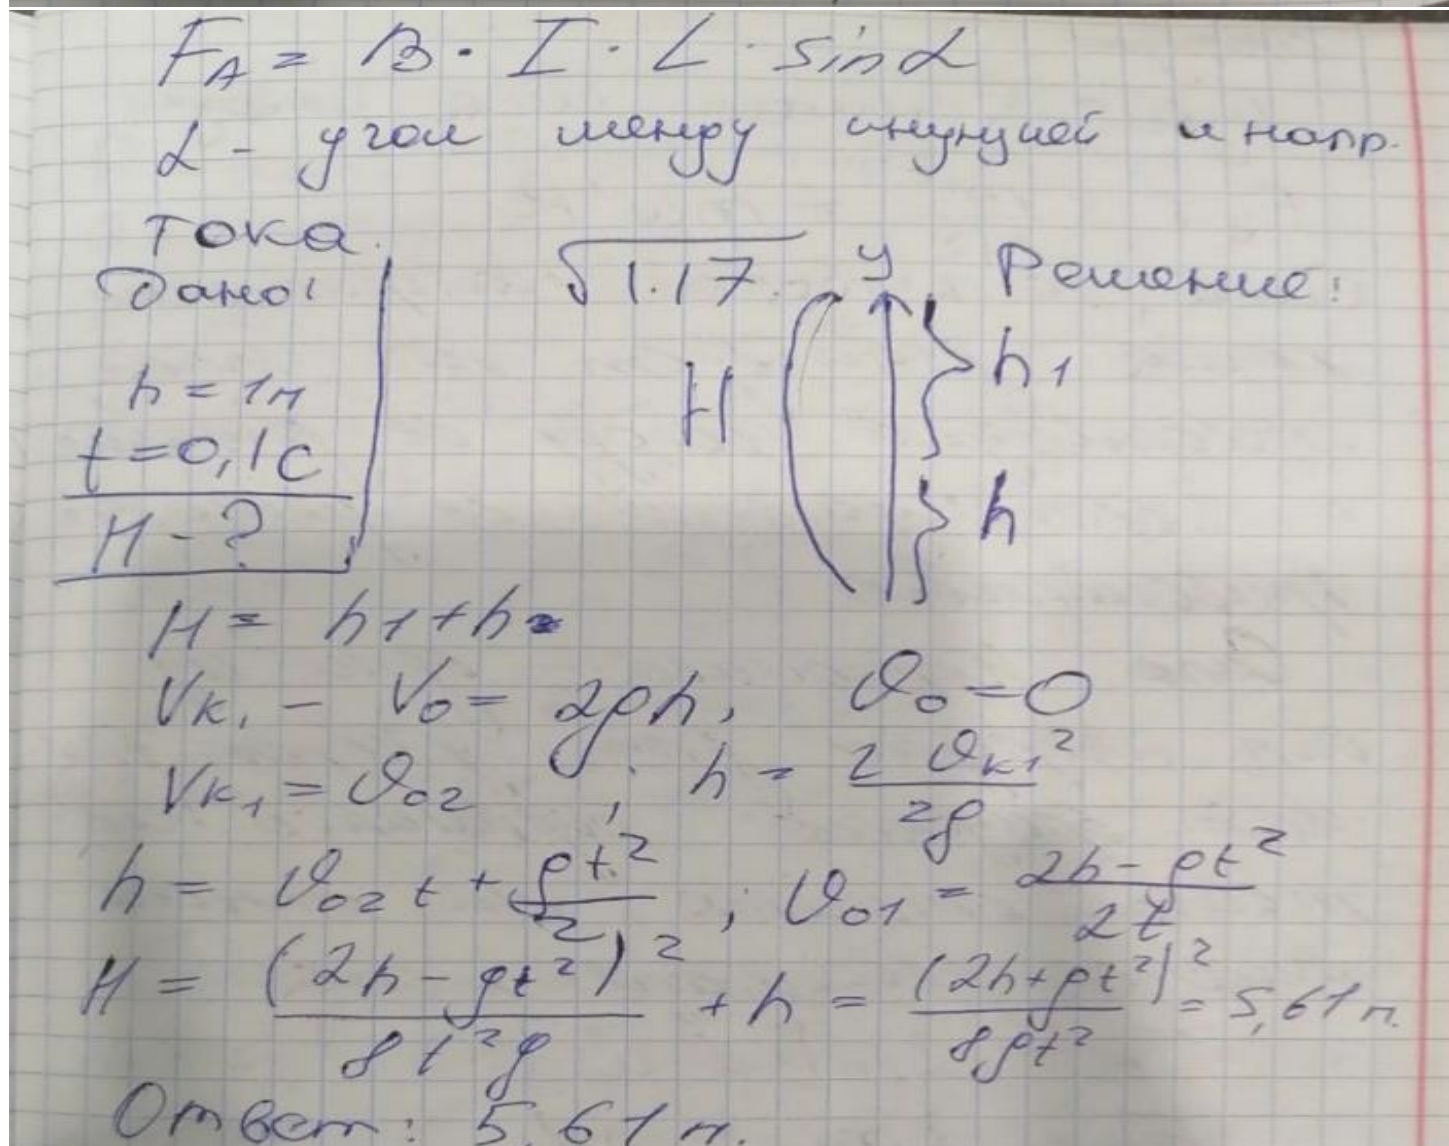 F_A = B · I · L · sin α
α - угол между индукцией и напр.
тока.
Дано:
√1.17.
y
Решение:
h = 1м
t = 0,1 с
H - ?
H
h1
h
H = h1 + h
Vк₁ - V₀ = 2gh, ϑ₀ = 0
Vк₁ = ϑ₀₂ ; h = 2 ϑк₁² / 2g
h = ϑ₀₂ t + gt² / 2 ; ϑ₀₁ = 2h - gt² / 2t
H = (2h - gt²)² / 8t²g + h = (2h + gt²)² / 8gt² = 5,61 м.
Ответ: 5,61 м.